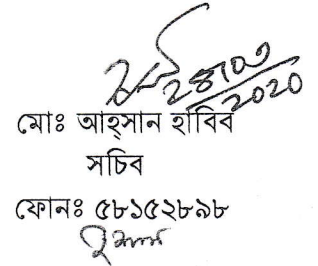 ২৪/০৩
২০২০
মোঃ আহ্সান হাবিব
সচিব
ফোনঃ ৫৮১৫২৮৯৮